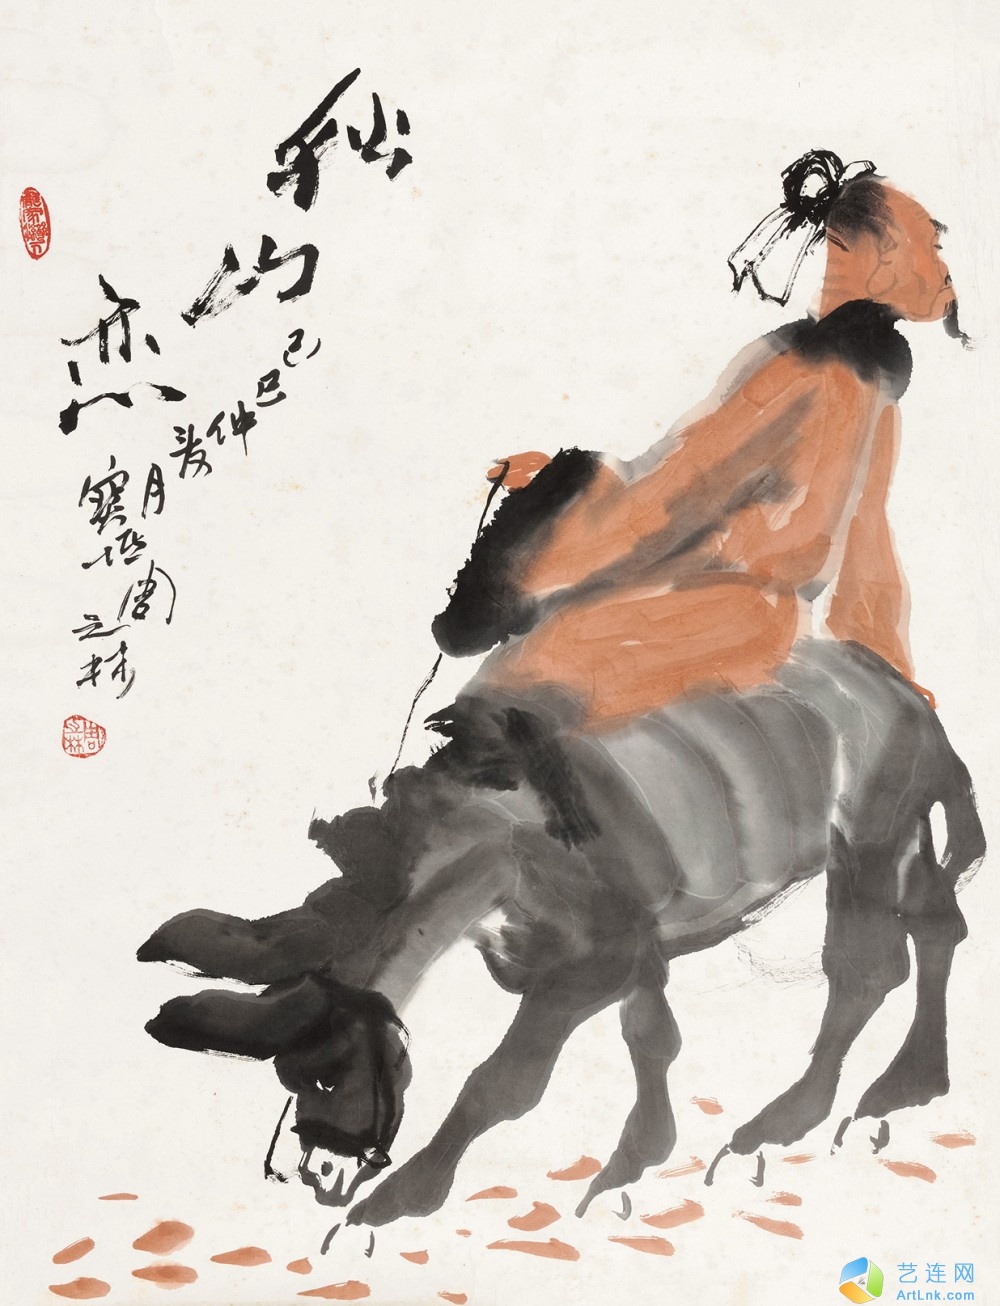 秋山恋
己巳仲夏月
寶坻周之林
周之林
艺连网
ArtLnk.com